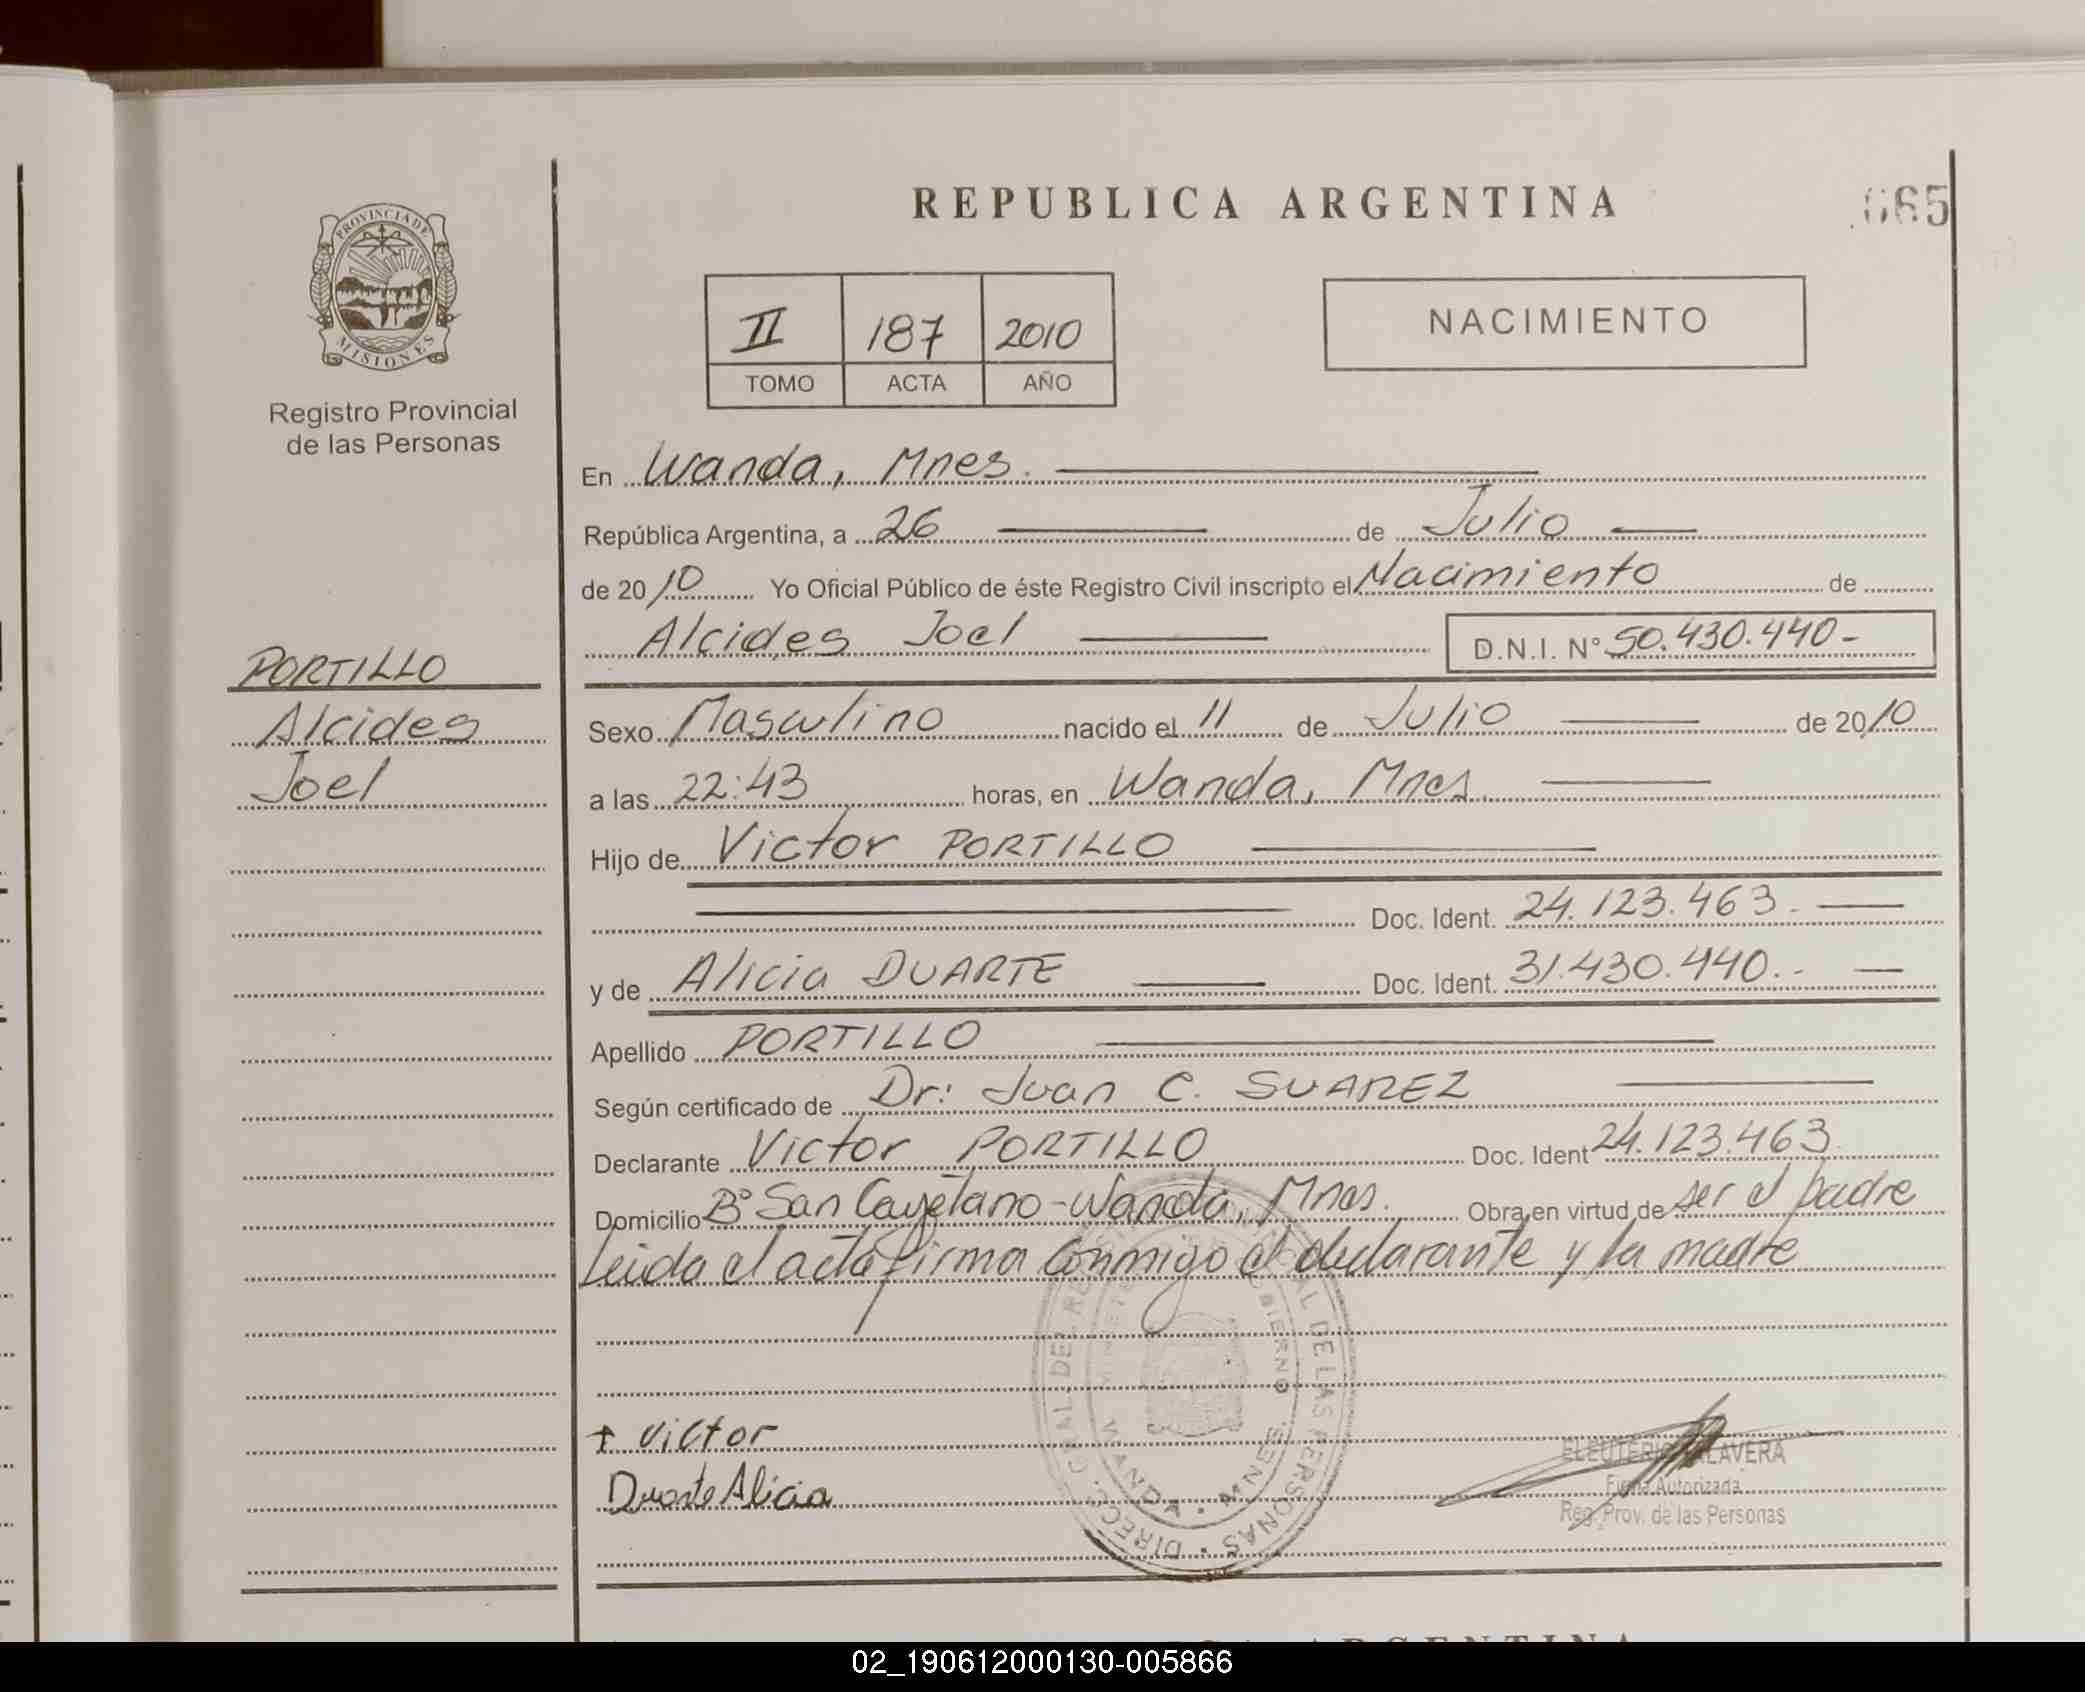 REPUBLICA ARGENTINA
665
PROVINCIA DE
MISIONES
Registro Provincial
de las Personas
II 187 2010
TOMO ACTA AÑO
NACIMIENTO
En Wanda, Mnes.
República Argentina, a 26 de Julio
de 2010 Yo Oficial Público de éste Registro Civil inscripto el Nacimiento de
Alcides Joel D.N.I. N° 50.430.440-
PORTILLO
Alcides
Joel
Sexo Masculino nacido el 11 de Julio de 2010
a las 22:43 horas, en Wanda, Mnes.
Hijo de Victor PORTILLO
Doc. Ident. 24.123.463.
y de Alicia DUARTE Doc. Ident. 31.430.440.-
Apellido PORTILLO
Según certificado de Dr: Juan C. SUAREZ
Declarante Victor PORTILLO Doc. Ident 24.123.463.
Domicilio B° San Cayetano - Wanda, Mnes. Obra en virtud de ser el padre
Leida el acta firma conmigo el declarante y la madre
+ Victor
Duarte Alicia
DIRECC. GRAL. DEL REG. PROVINCIAL DE LAS PERSONAS
WANDA - MNES.
ELEUTERIO TALAVERA
Firma Autorizada
Reg. Prov. de las Personas
ARGENTINA
02_190612000130-005866